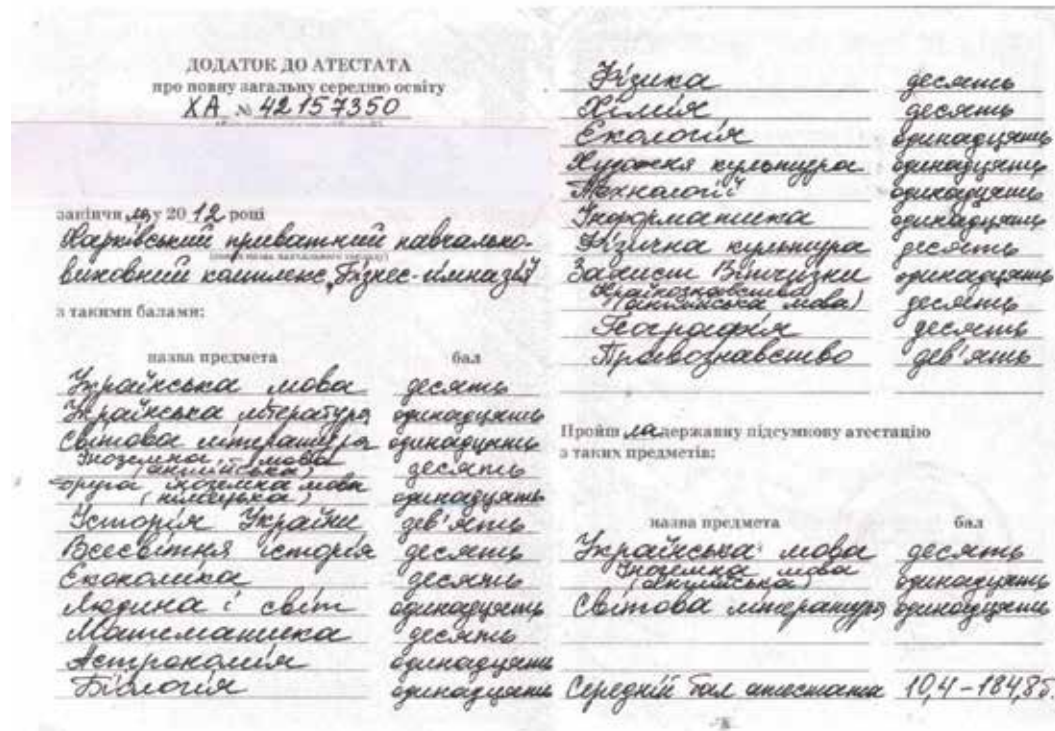 ДОДАТОК ДО АТЕСТАТА
про повну загальну середню освіту
ХА № 42157350
закінчила у 2012 році
Харківський приватний навчально-
(повна назва навчального закладу)
виховний комплекс „Бізнес-гімназія"
з такими балами:
назва предмета бал
Українська мова десять
Українська література одинадцять
Світова література одинадцять
Іноземна мова
(англійська) десять
Друга іноземна мова
(німецька) одинадцять
Історія України дев'ять
Всесвітня історія десять
Економіка десять
Людина і світ одинадцять
Математика десять
Астрономія одинадцять
Біологія одинадцять
Фізика десять
Хімія десять
Екологія одинадцять
Художня культура одинадцять
Технології одинадцять
Інформатика одинадцять
Фізична культура десять
Захист Вітчизни одинадцять
Країнознавство
(англійська мова) десять
Географія десять
Правознавство дев'ять
Пройшла державну підсумкову атестацію
з таких предметів:
назва предмета бал
Українська мова десять
Іноземна мова
(англійська) одинадцять
Світова література одинадцять
Середній бал атестата 10,4-184,8б.